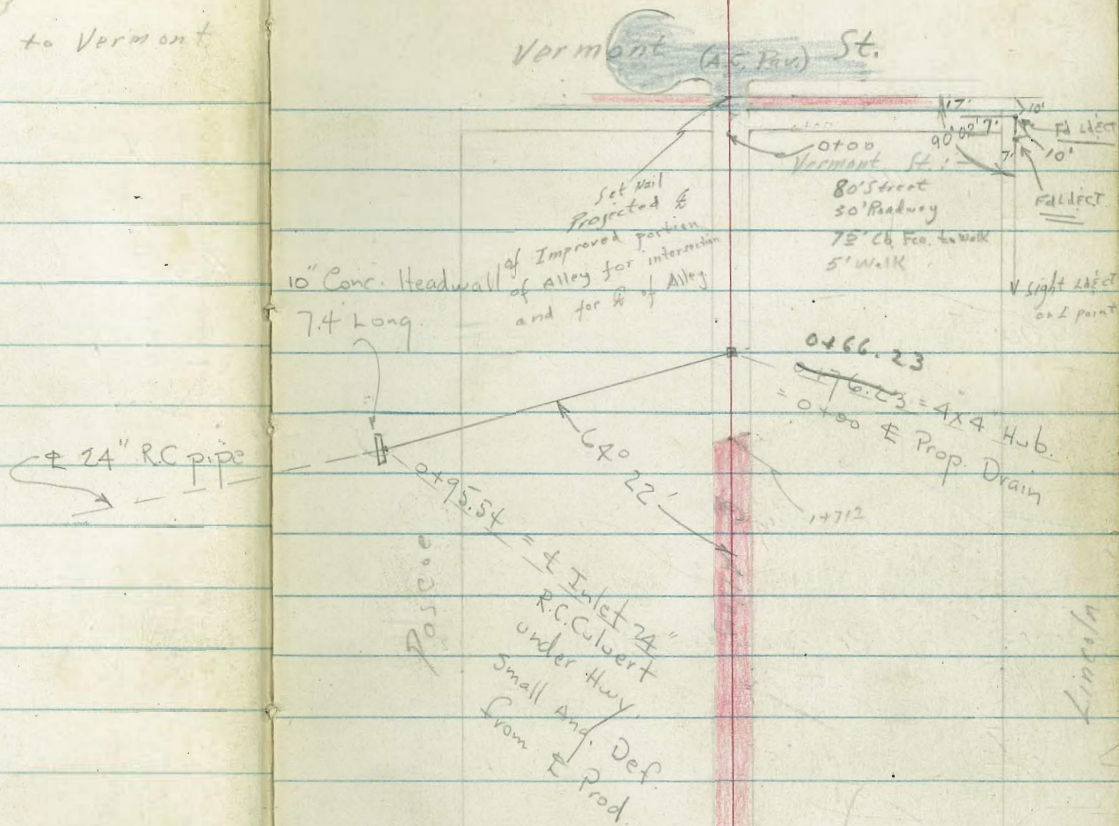 to Vermont
Vermont (A.C. Pav.) St.
17'
10'
Fd L&ECT
90°02'
7'
0+00
7'
10'
Vermont St:
80' Street
30' Roadway
7½' Cb. Fce. to Walk
5' Walk
Fd L&ECT
Set Nail
Projected ℄
of Improved portion
of Alley for intersection
and for ℄ of Alley
V sight L&ECT
on L point
10" Conc. Headwall
7.4 Long.
0+66.23
0+76.23 = 4x4 Hub.
= 0+00 ℄ Prop. Drain
℄ 24" R.C pipe
64° 22'
1+71²
0+95.54 = ℄ Inlet 24"
R.C. Culvert
under Hwy.
Small Ang. Def
from ℄ Prod
Lincoln